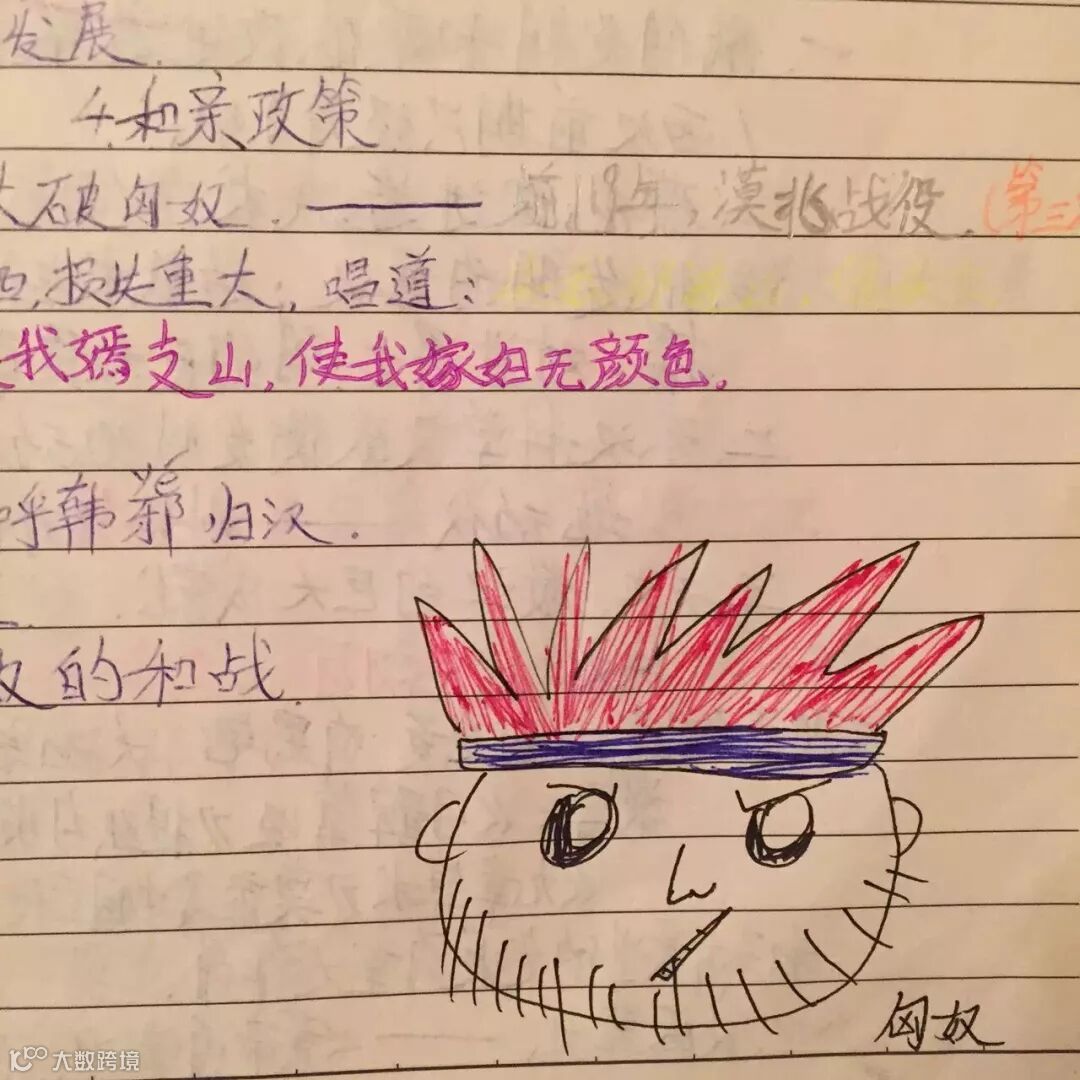 发展.
4.和亲政策
大破匈奴. —— 前119年,漠北战役.(第三
损失重大,唱道:
我嫣支山,使我嫁妇无颜色.
呼韩邪归汉.
yé
的和战
匈奴
大数跨境